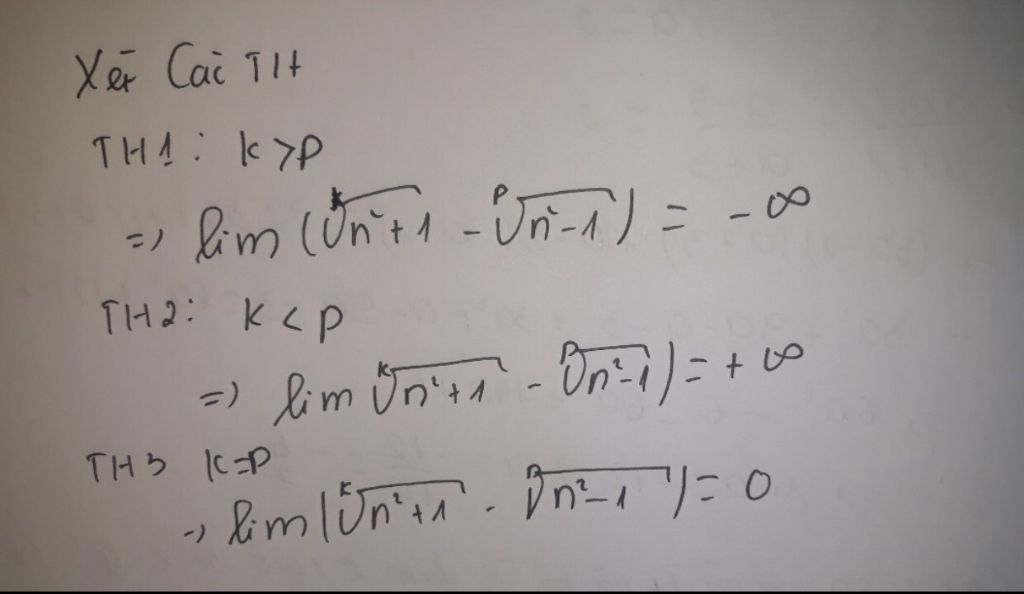 Xét Các TH
TH1: k > p
=> lim (ᵏ√n²+1 - ᵖ√n²-1) = -∞
TH2: k < p
=> lim ᵏ√n²+1 - ᵖ√n²-1) = +∞
TH3 k=p
-> lim (ᵏ√n²+1 - ᵖ√n²-1) = 0